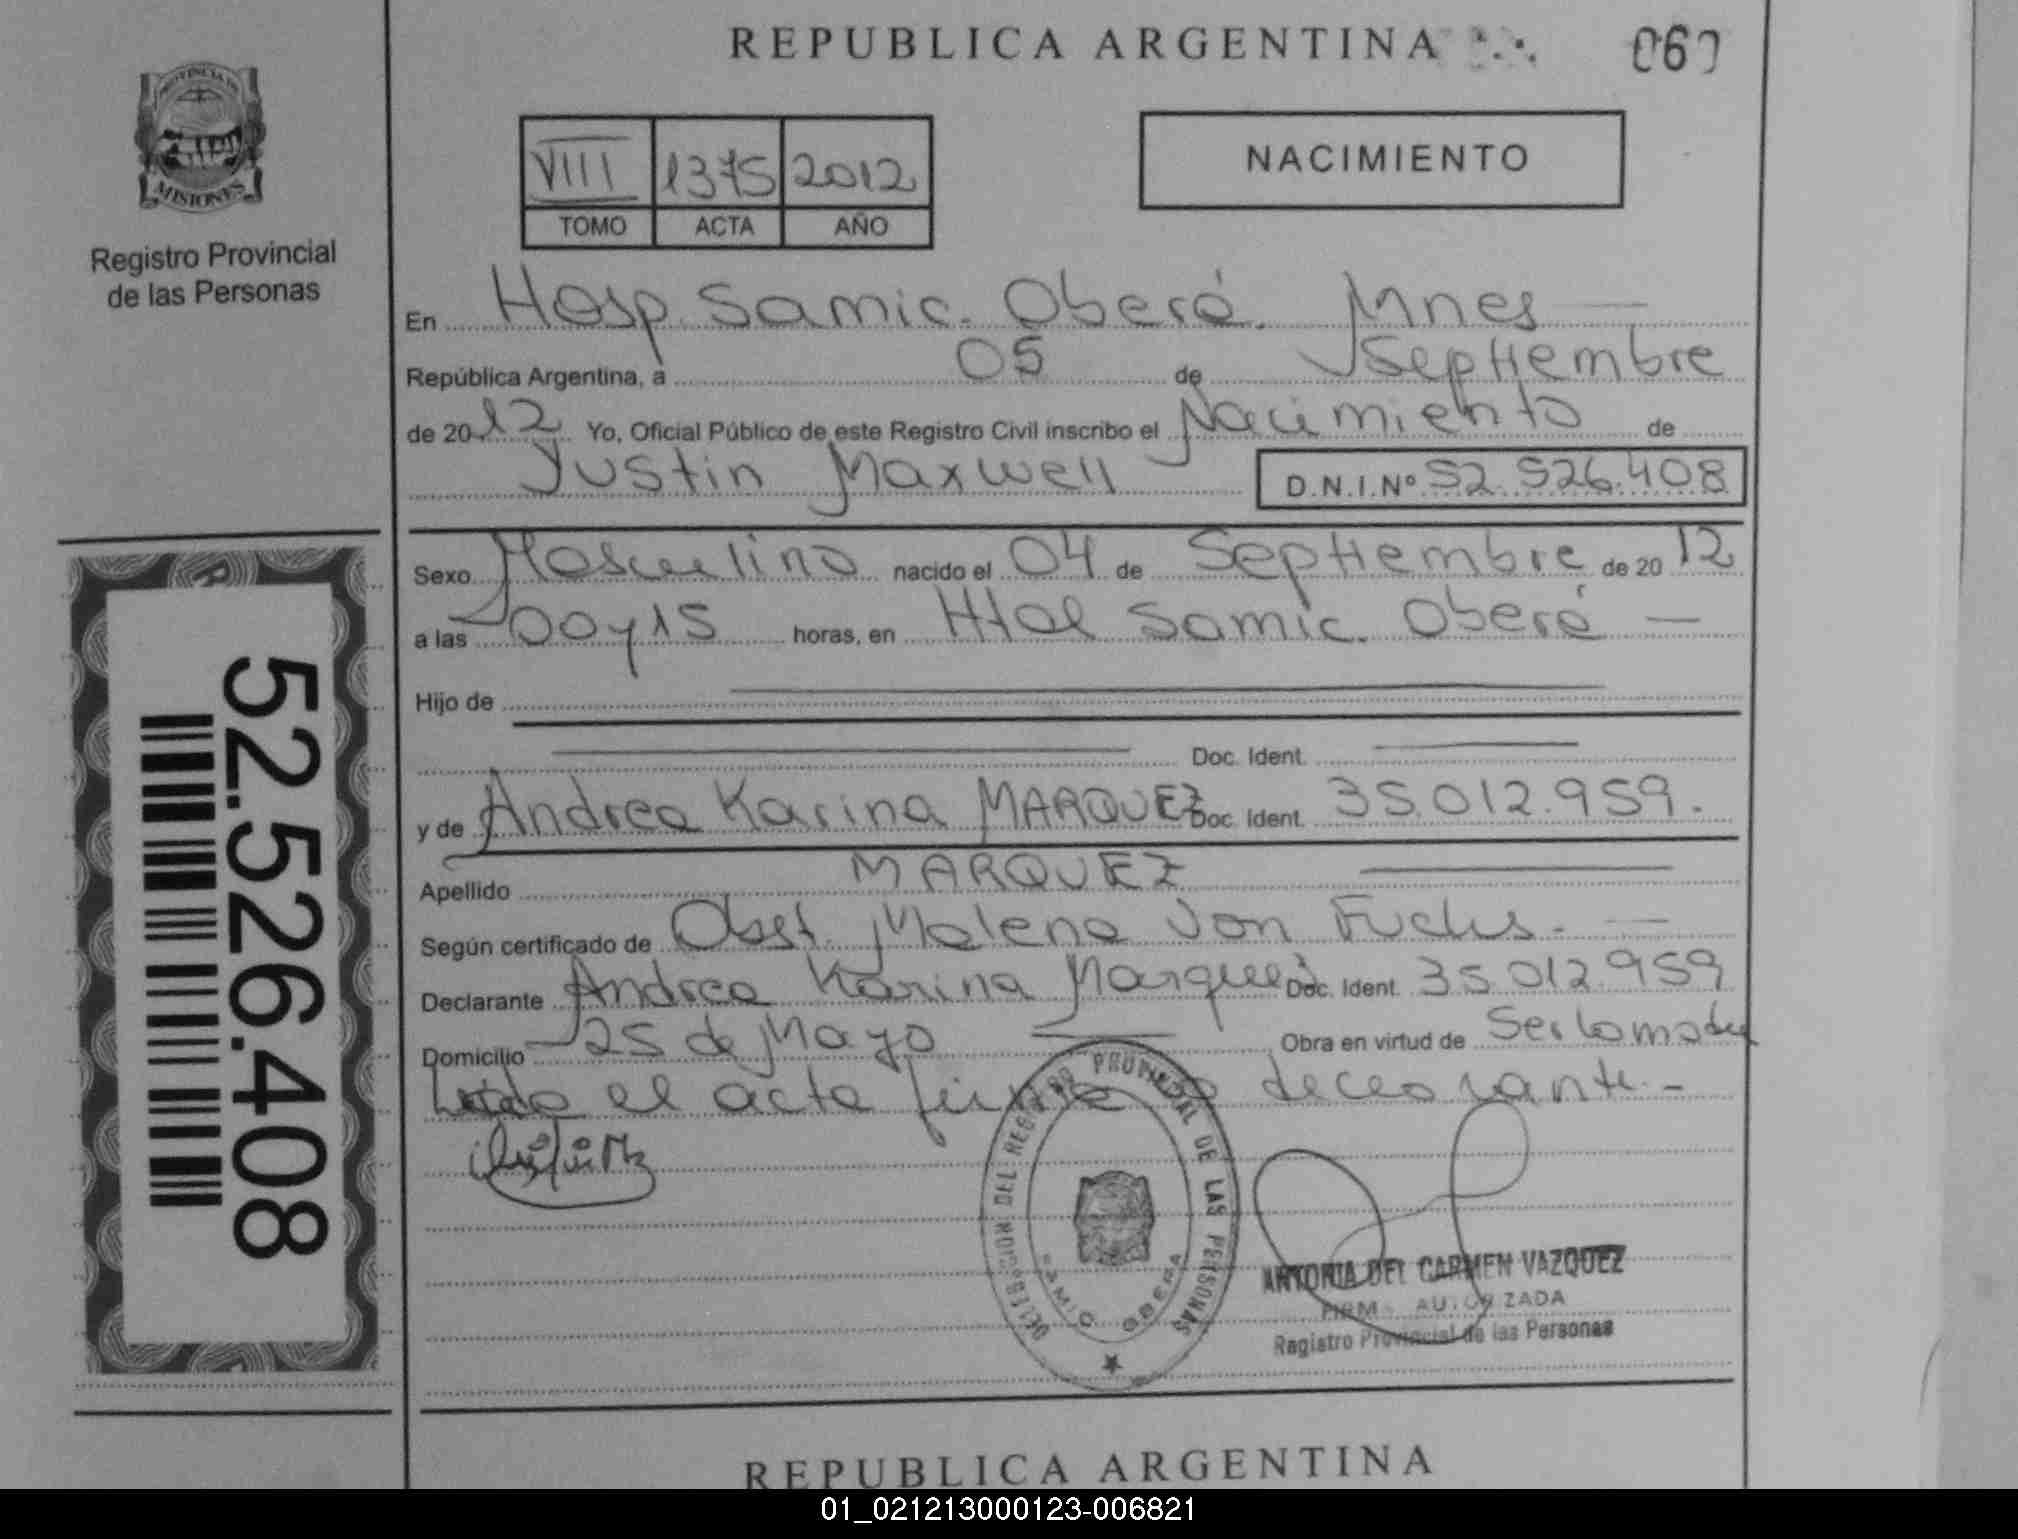 REPUBLICA ARGENTINA
060
PROVINCIA DE
MISIONES
Registro Provincial
de las Personas
VIII 1375 2012
TOMO ACTA AÑO
NACIMIENTO
En Hosp. Samic. Oberá. Mnes
República Argentina, a 05 de Septiembre
de 2012 Yo, Oficial Público de este Registro Civil inscribo el Nacimiento de
Justin Maxwell D.N.I.Nº 52.526.408
Sexo Masculino nacido el 04 de Septiembre de 2012
a las 00y15 horas, en Htal Samic. Oberá
Hijo de
Doc. Ident.
y de Andrea Karina MARQUEZ Doc. Ident. 35.012.959.
Apellido MARQUEZ
Según certificado de Obst. Malena Von Fuchs.
Declarante Andrea Karina Marquez Doc. Ident. 35.012.959
Domicilio 25 de Mayo Obra en virtud de Ser la madre
Leída el acta firma la declarante.-
52.526.408
DEL REGISTRO PROVINCIAL DE LAS PERSONAS
OBERA
ANTONIA DEL CARMEN VAZQUEZ
FIRMA AUTORIZADA
Registro Provincial de las Personas
REPUBLICA ARGENTINA
01_021213000123-006821